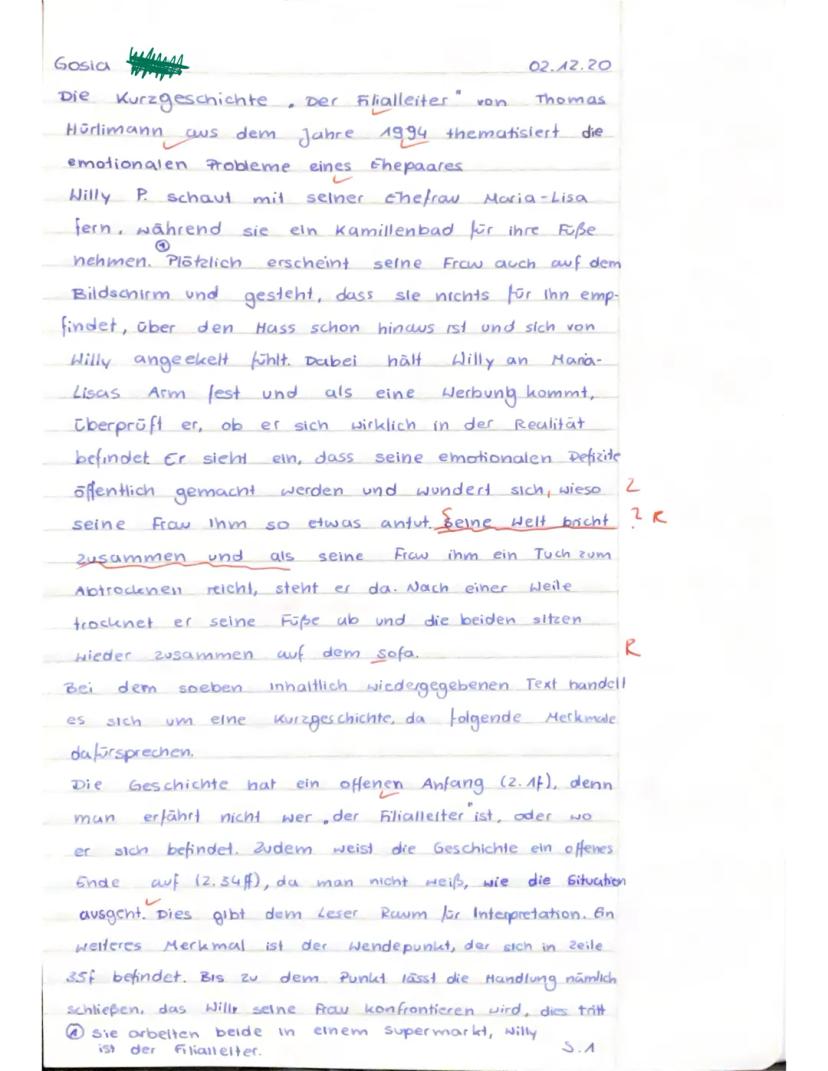 Gosia 02.12.20
Die Kurzgeschichte „Der Filialleiter" von Thomas
Hürlimann aus dem Jahre 1994 thematisiert die
emotionalen Probleme eines Ehepaares
Willy P. schaut mit seiner Ehefrau Maria-Lisa
fern, während sie ein Kamillenbad für ihre Füße
nehmen. ① Plötzlich erscheint seine Frau auch auf dem
Bildschirm und gesteht, dass sie nichts für ihn emp-
findet, über den Hass schon hinaus ist und sich von
Willy angeekelt fühlt. Dabei hält Willy an Maria-
Lisas Arm fest und als eine Werbung kommt,
überprüft er, ob er sich wirklich in der Realität
befindet. Er sieht ein, dass seine emotionalen Defizite
öffentlich gemacht werden und wundert sich, wieso Z
seine Frau ihm so etwas antut. Seine Welt bricht ? R
zusammen und als seine Frau ihm ein Tuch zum
Abtrocknen reicht, steht er da. Nach einer Weile
trocknet er seine Füße ab und die beiden sitzen
wieder zusammen auf dem sofa. R
Bei dem soeben inhaltlich wiedergegebenen Text handelt
es sich um eine Kurzgeschichte, da folgende Merkmale
dafürsprechen.
Die Geschichte hat ein offenen Anfang (Z. 1f), denn
man erfährt nicht wer „der Filialleiter" ist, oder wo
er sich befindet. Zudem weist die Geschichte ein offenes
Ende auf (Z. 34ff), da man nicht weiß, wie die Situation
ausgeht. Dies gibt dem Leser Raum für Interpretation. Ein
weiteres Merkmal ist der Wendepunkt, der sich in Zeile
35f befindet. Bis zu dem Punkt lässt die Handlung nämlich
schließen, das Willy seine Frau konfrontieren wird, dies tritt
① Sie arbeiten beide in einem Supermarkt, Willy
ist der Filialleiter. S.1